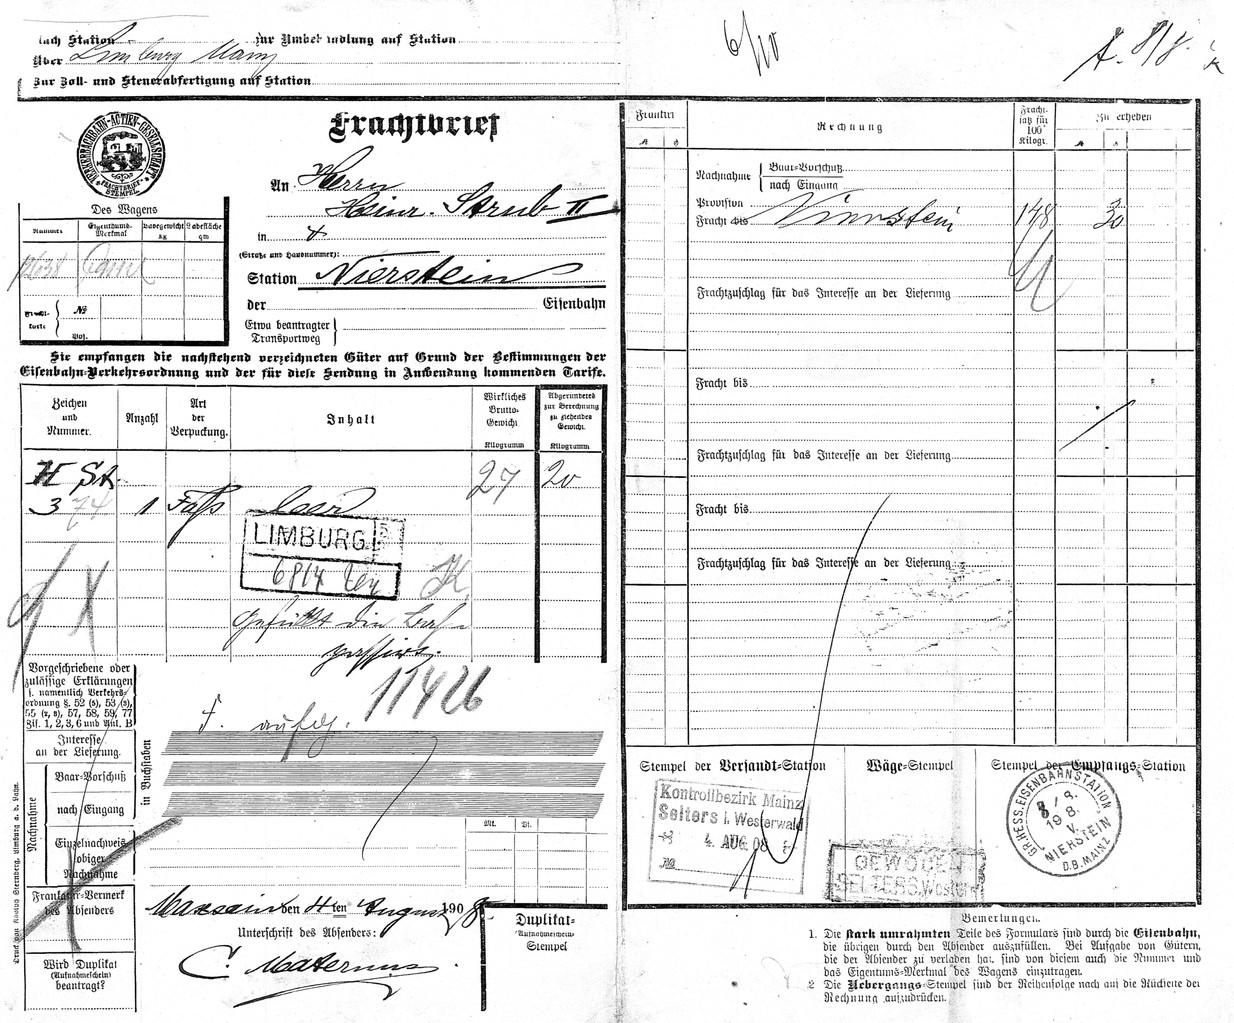 nach Station
zur Umbehandlung auf Station
Über Limburg
Zur Zoll- und Steuerabfertigung auf Station
6/10
BREXERBACHBAHN-ACTIEN-GESELLSCHAFT
FRACHTBRIEF STEMPEL
Frachtbrief
An Herrn
Heinr. Strub II
in
(Straße und Hausnummer):
Station Nierstein
der Eisenbahn
Etwa beantragter
Transportweg
Des Wagens
Nummer
Eigenthums-Merkmal
Ladegewicht kg
Ladefläche qm
No
Sie empfangen die nachstehend verzeichneten Güter auf Grund der Bestimmungen der
Eisenbahn-Verkehrsordnung und der für diese Sendung in Anwendung kommenden Tarife.
Zeichen und Nummer.
Anzahl
Art der Verpackung.
Inhalt
Wirkliches Brutto-Gewicht Kilogramm
Abgerundetes zur Berechnung zu ziehendes Gewicht. Kilogramm
H St.
27
20
374
1
Fass
leer
LIMBURG
11426
Vorgeschriebene oder
zulässige Erklärungen
s. namentlich Verkehrs-
ordnung §. 52 (5), 53 (3),
55 (2, 3), 57, 58, 59, 77
Zif. 1, 2, 3, 6 und Anl. B
Interesse
an der Lieferung.
Nachnahme
Baar-Vorschuß
nach Eingang
Einzelnachweis
obiger
Nachnahme
in Buchstaben
Mk.
Pf.
Frankatur-Vermerk
des Absenders
Wird Duplikat
(Aufnahmeschein)
beantragt?
den 4ten August 1908.
Unterschrift des Absenders:
C. Maternus
Duplikat-
(Aufnahmeschein-)
Stempel
Druck von Limburg a. d. Lahn.
Frankirt
Rechnung
Frachtsatz für 100 Kilogr.
Zu erheben
Nachnahme
Baar-Vorschuß
nach Eingang
Provision
Fracht bis Nierstein
148
30
Frachtzuschlag für das Interesse an der Lieferung
Fracht bis
Frachtzuschlag für das Interesse an der Lieferung
Fracht bis
Frachtzuschlag für das Interesse an der Lieferung
Stempel der Versandt-Station
Wäge-Stempel
Stempel der Empfangs-Station
Kontrollbezirk Mainz
Selters i. Westerwald
4. AUG 08
No
GEWOGEN
SELTERS, Westerw.
GR. HESS. EISENBAHNSTATION
8/8.
1908.
V.
NIERSTEIN
D.B. MAINZ
Bemerkungen.
1. Die stark umrahmten Teile des Formulars sind durch die Eisenbahn,
die übrigen durch den Absender auszufüllen. Bei Aufgabe von Gütern,
die der Absender zu verladen hat, sind von diesem auch die Nummer und
das Eigentums-Merkmal des Wagens einzutragen.
2 Die Uebergangs-Stempel sind der Reihenfolge nach auf die Rückseite der
Rechnung aufzudrücken.